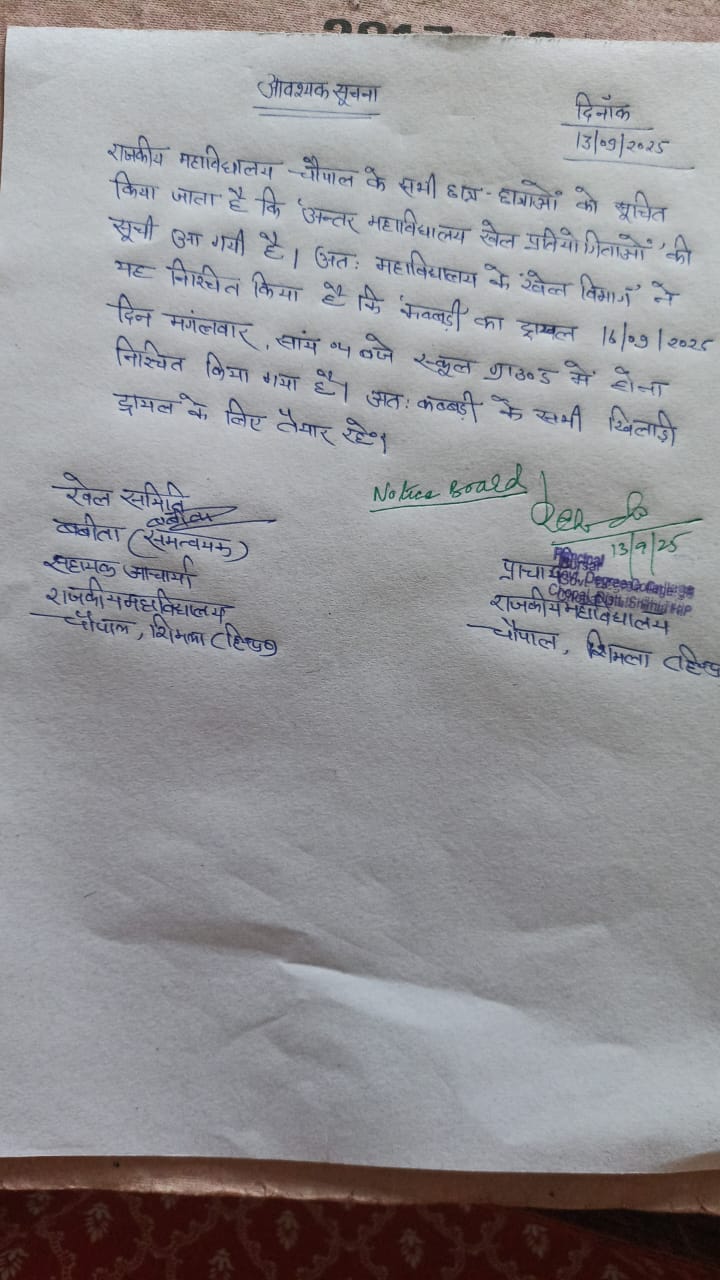 आवश्यक सूचना
दिनाँक
13/09/2025
राजकीय महाविद्यालय चौपाल के सभी छात्र-छात्राओं को सूचित
किया जाता है कि 'अन्तर महाविद्यालय खेल प्रतियोगिताओं' की
सूची आ गयी है। अतः महाविद्यालय के 'खेल विभाग' ने
यह निश्चित किया है कि 'कब्बडी' का ट्रायल 16/09/2025
दिन मगंलवार, सांय 04 बजे स्कूल ग्राउण्ड में होना
निश्चित किया गया है। अतः कब्बडी के सभी खिलाड़ी
ट्रायल के लिए तैयार रहें।
Notice Board
13/9/25
खेल समिति
बबीता
बबीता (समन्वयक)
सहायक आचार्या
राजकीय महाविद्यालय
चौपाल, शिमला (हि०प्र०)
प्राचार्य
Principal
Govt. Degree College
Chopal Distt. Shimla HP
राजकीय महाविद्यालय
चौपाल, शिमला (हि०प्र